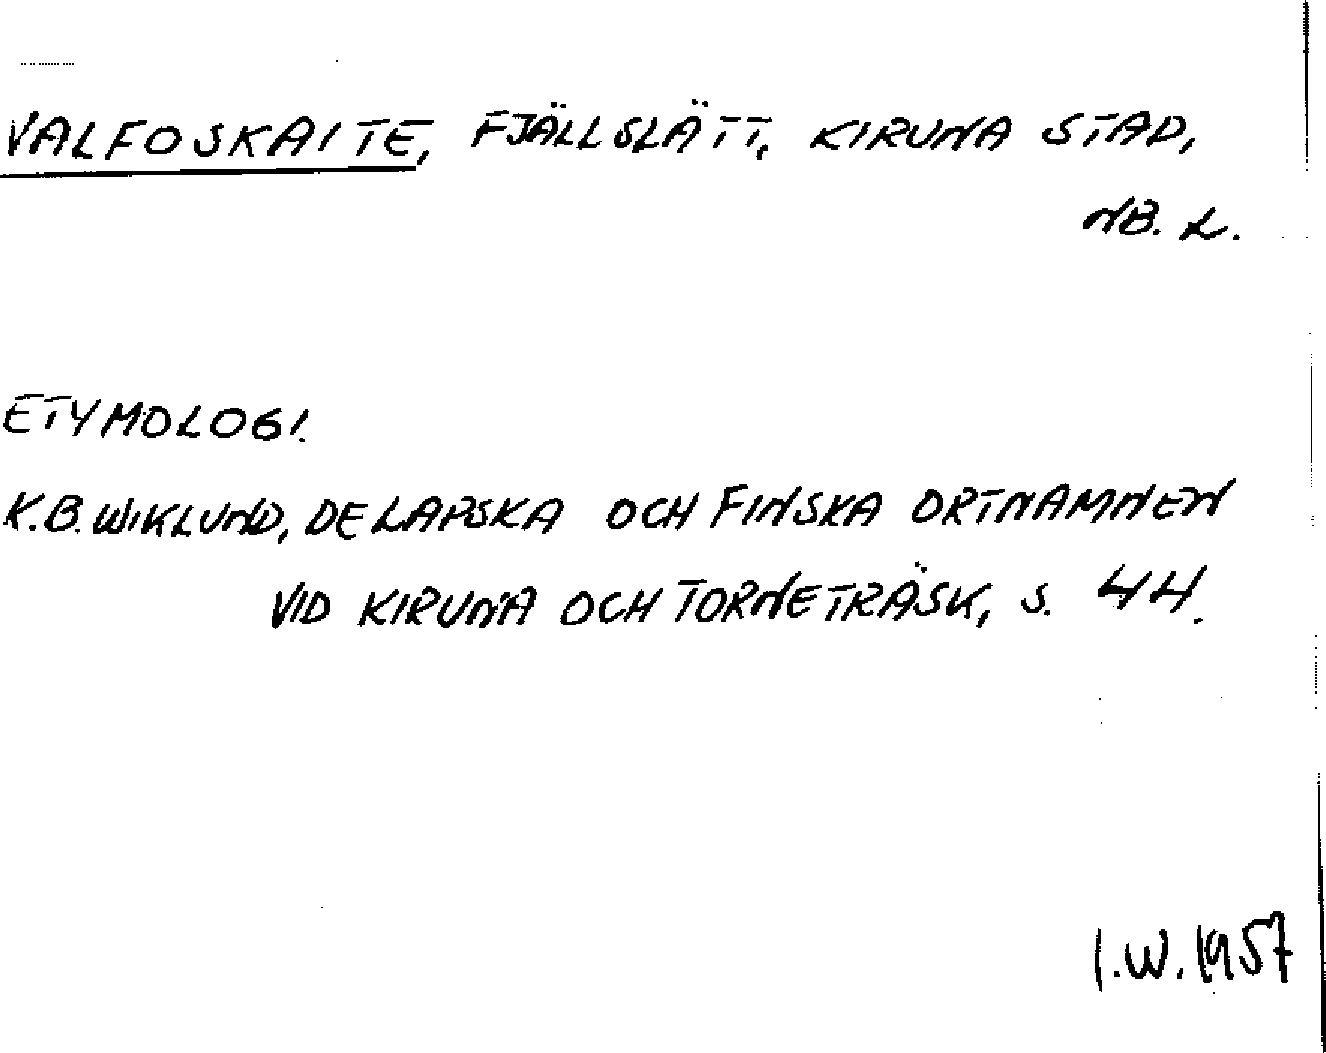 VALFOSKAITE, FJÄLLSLÄTT, KIRUNA STAD,
NB. L.
ETYMOLOGI.
K.B. WIKLUND, DE LAPSKA OCH FINSKA ORTNAMNEN
VID KIRUNA OCH TORNETRÄSK, S. 44.
I.W. 1957